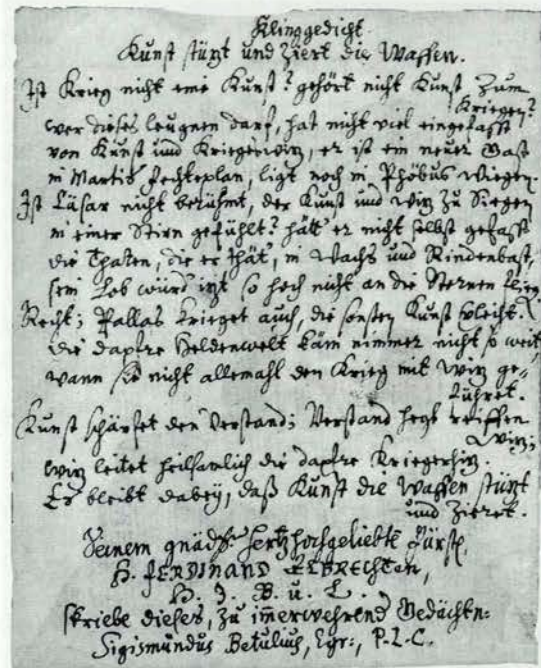 Klinggedicht
Kunst stüzt und Ziert die Waffen.
Ist Krieg nicht eine Kunst? gehört nicht Kunst zum
Kriegen?
wer dieses leugnen darf, hat nicht viel eingefasst
von Kunst und Kriegeswiz, er ist ein neuer Gast
in Martis Fechteplan, ligt noch in Phöbus Wiegen.
Ist Cäsar nicht berühmt, der Kunst und wiz zu Siegen
in einer Stirn gefühlt? hätt' er nicht selbst gefasst
die Thaten, die er thät, in Wachs und Rindenbast,
sein Lob würd izt so hoch nicht an die Sternen fliegē
Recht; Pallas krieget auch, die sonsten Kunst
die dapfre Heldenwelt käm nimmer nicht so weit,
wann sie nicht allemahl den Krieg mit Wiz ge-
führet.
Kunst schärfet den Verstand; Verstand hegt reiffen
Wiz;
wiz leitet heilsamlich die dapfre Kriegerhiz.
Es bleibt dabey, daß Kunst die Waffen stüzt
und Zieret.
Seinem gnäd: hertzhochgeliebtē Fürstē,
H. FERDINAND ELBRECHTEN,
H. Z. B. u. L.
schriebe dieses, zu im̄erwehrend Gedächtn:
Sigismundus Betulius, Egr:, P.L.C.